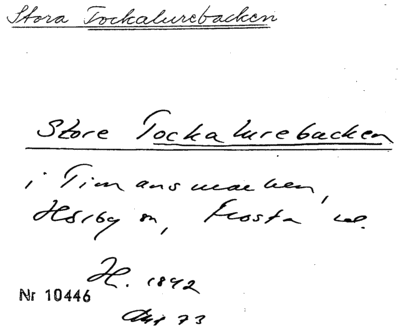 Stora Tockalurebacken
Store Tockalurebacken
i Timansmarken,
Hörby sn, Frosta hd.
H. 1892
Nr 10446
73